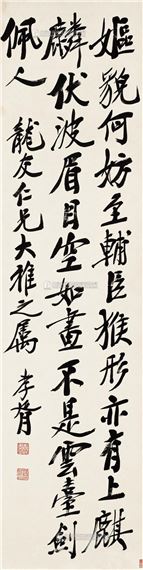 嫗貌何妨至輔臣猴形亦有上麒
麟伏波眉目空如畫不是雲臺劍
佩人 龍友仁兄大雅之属 孝胥